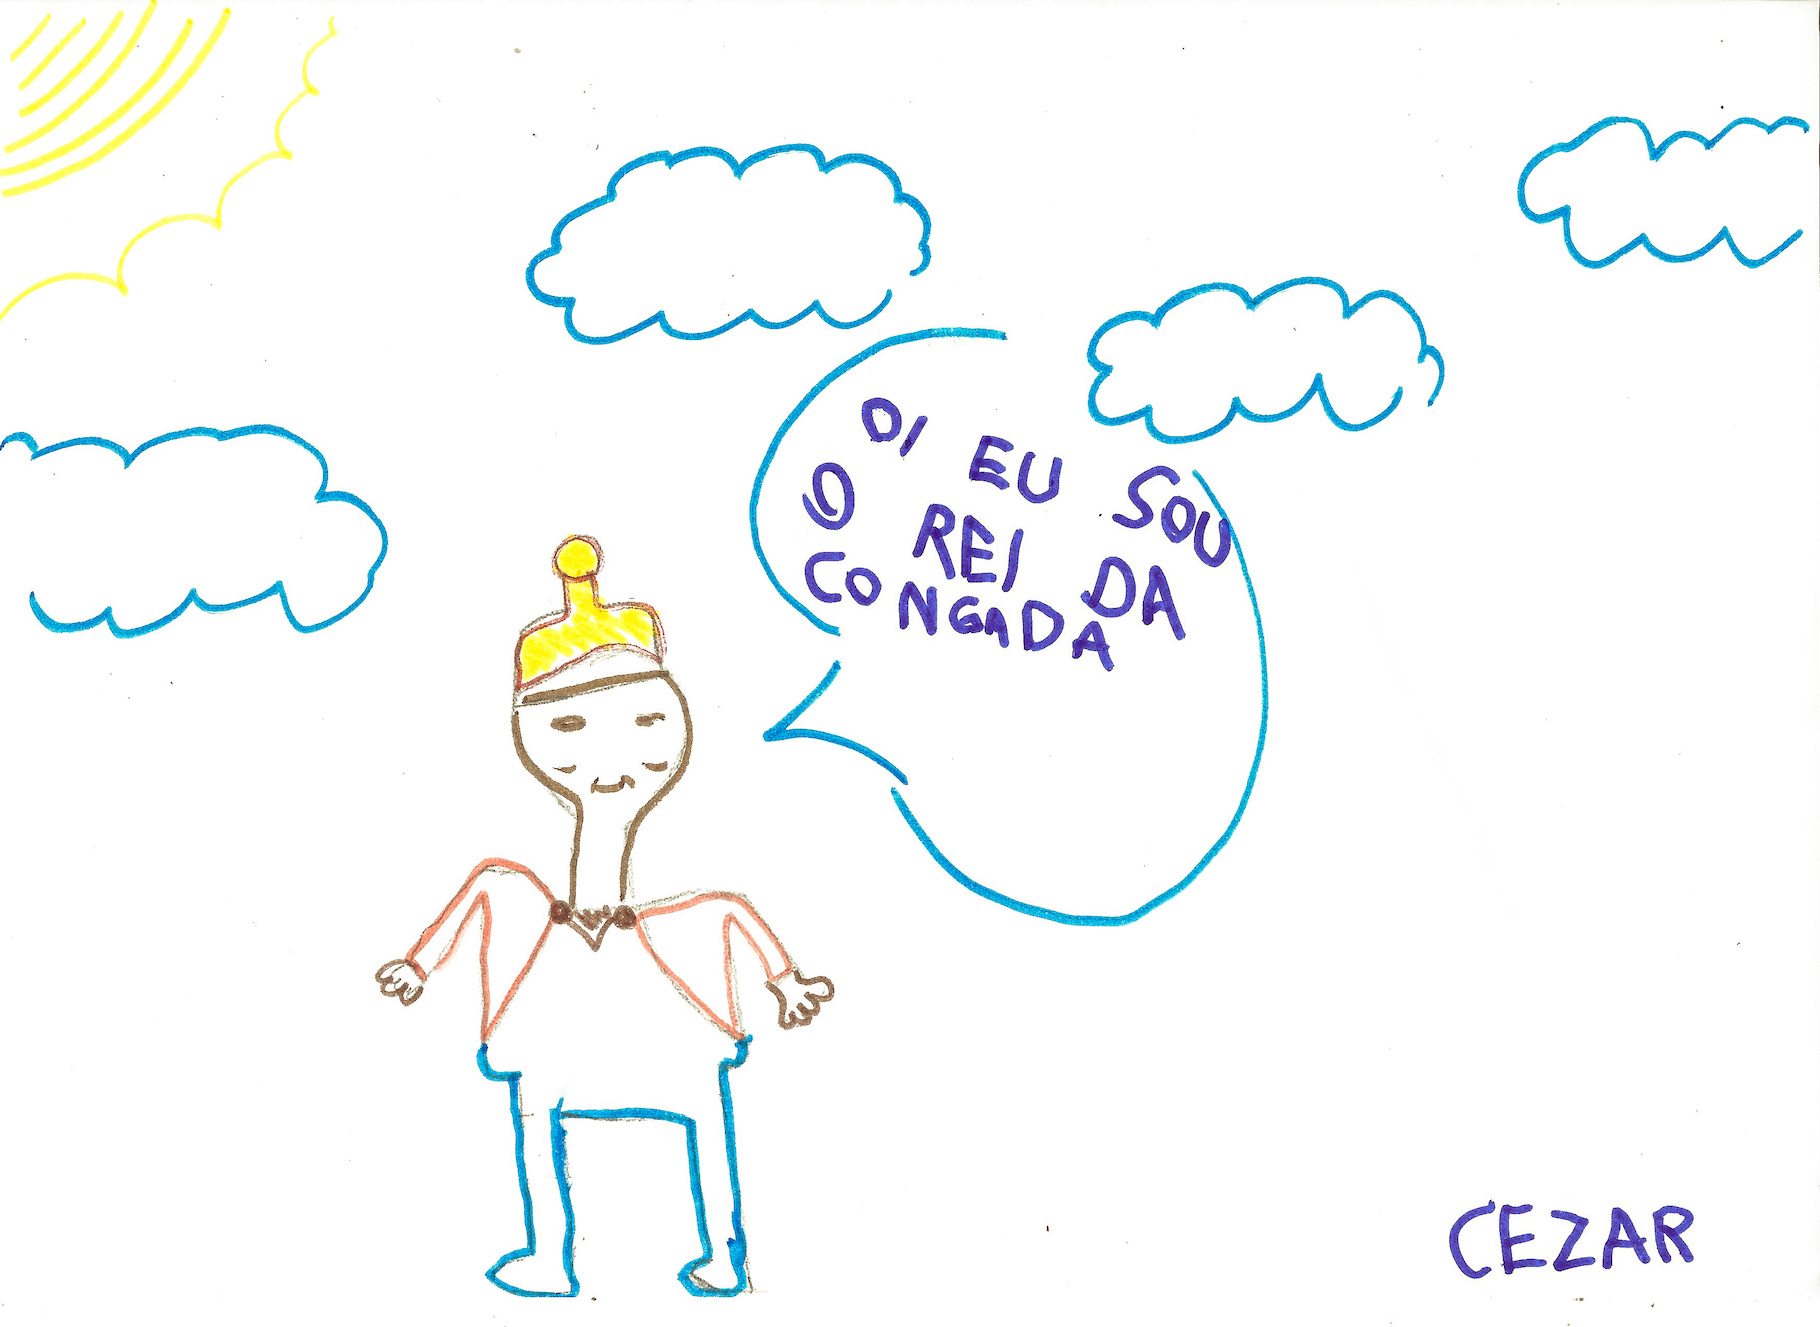 OI EU SOU
O REI DA
CONGADA
CEZAR